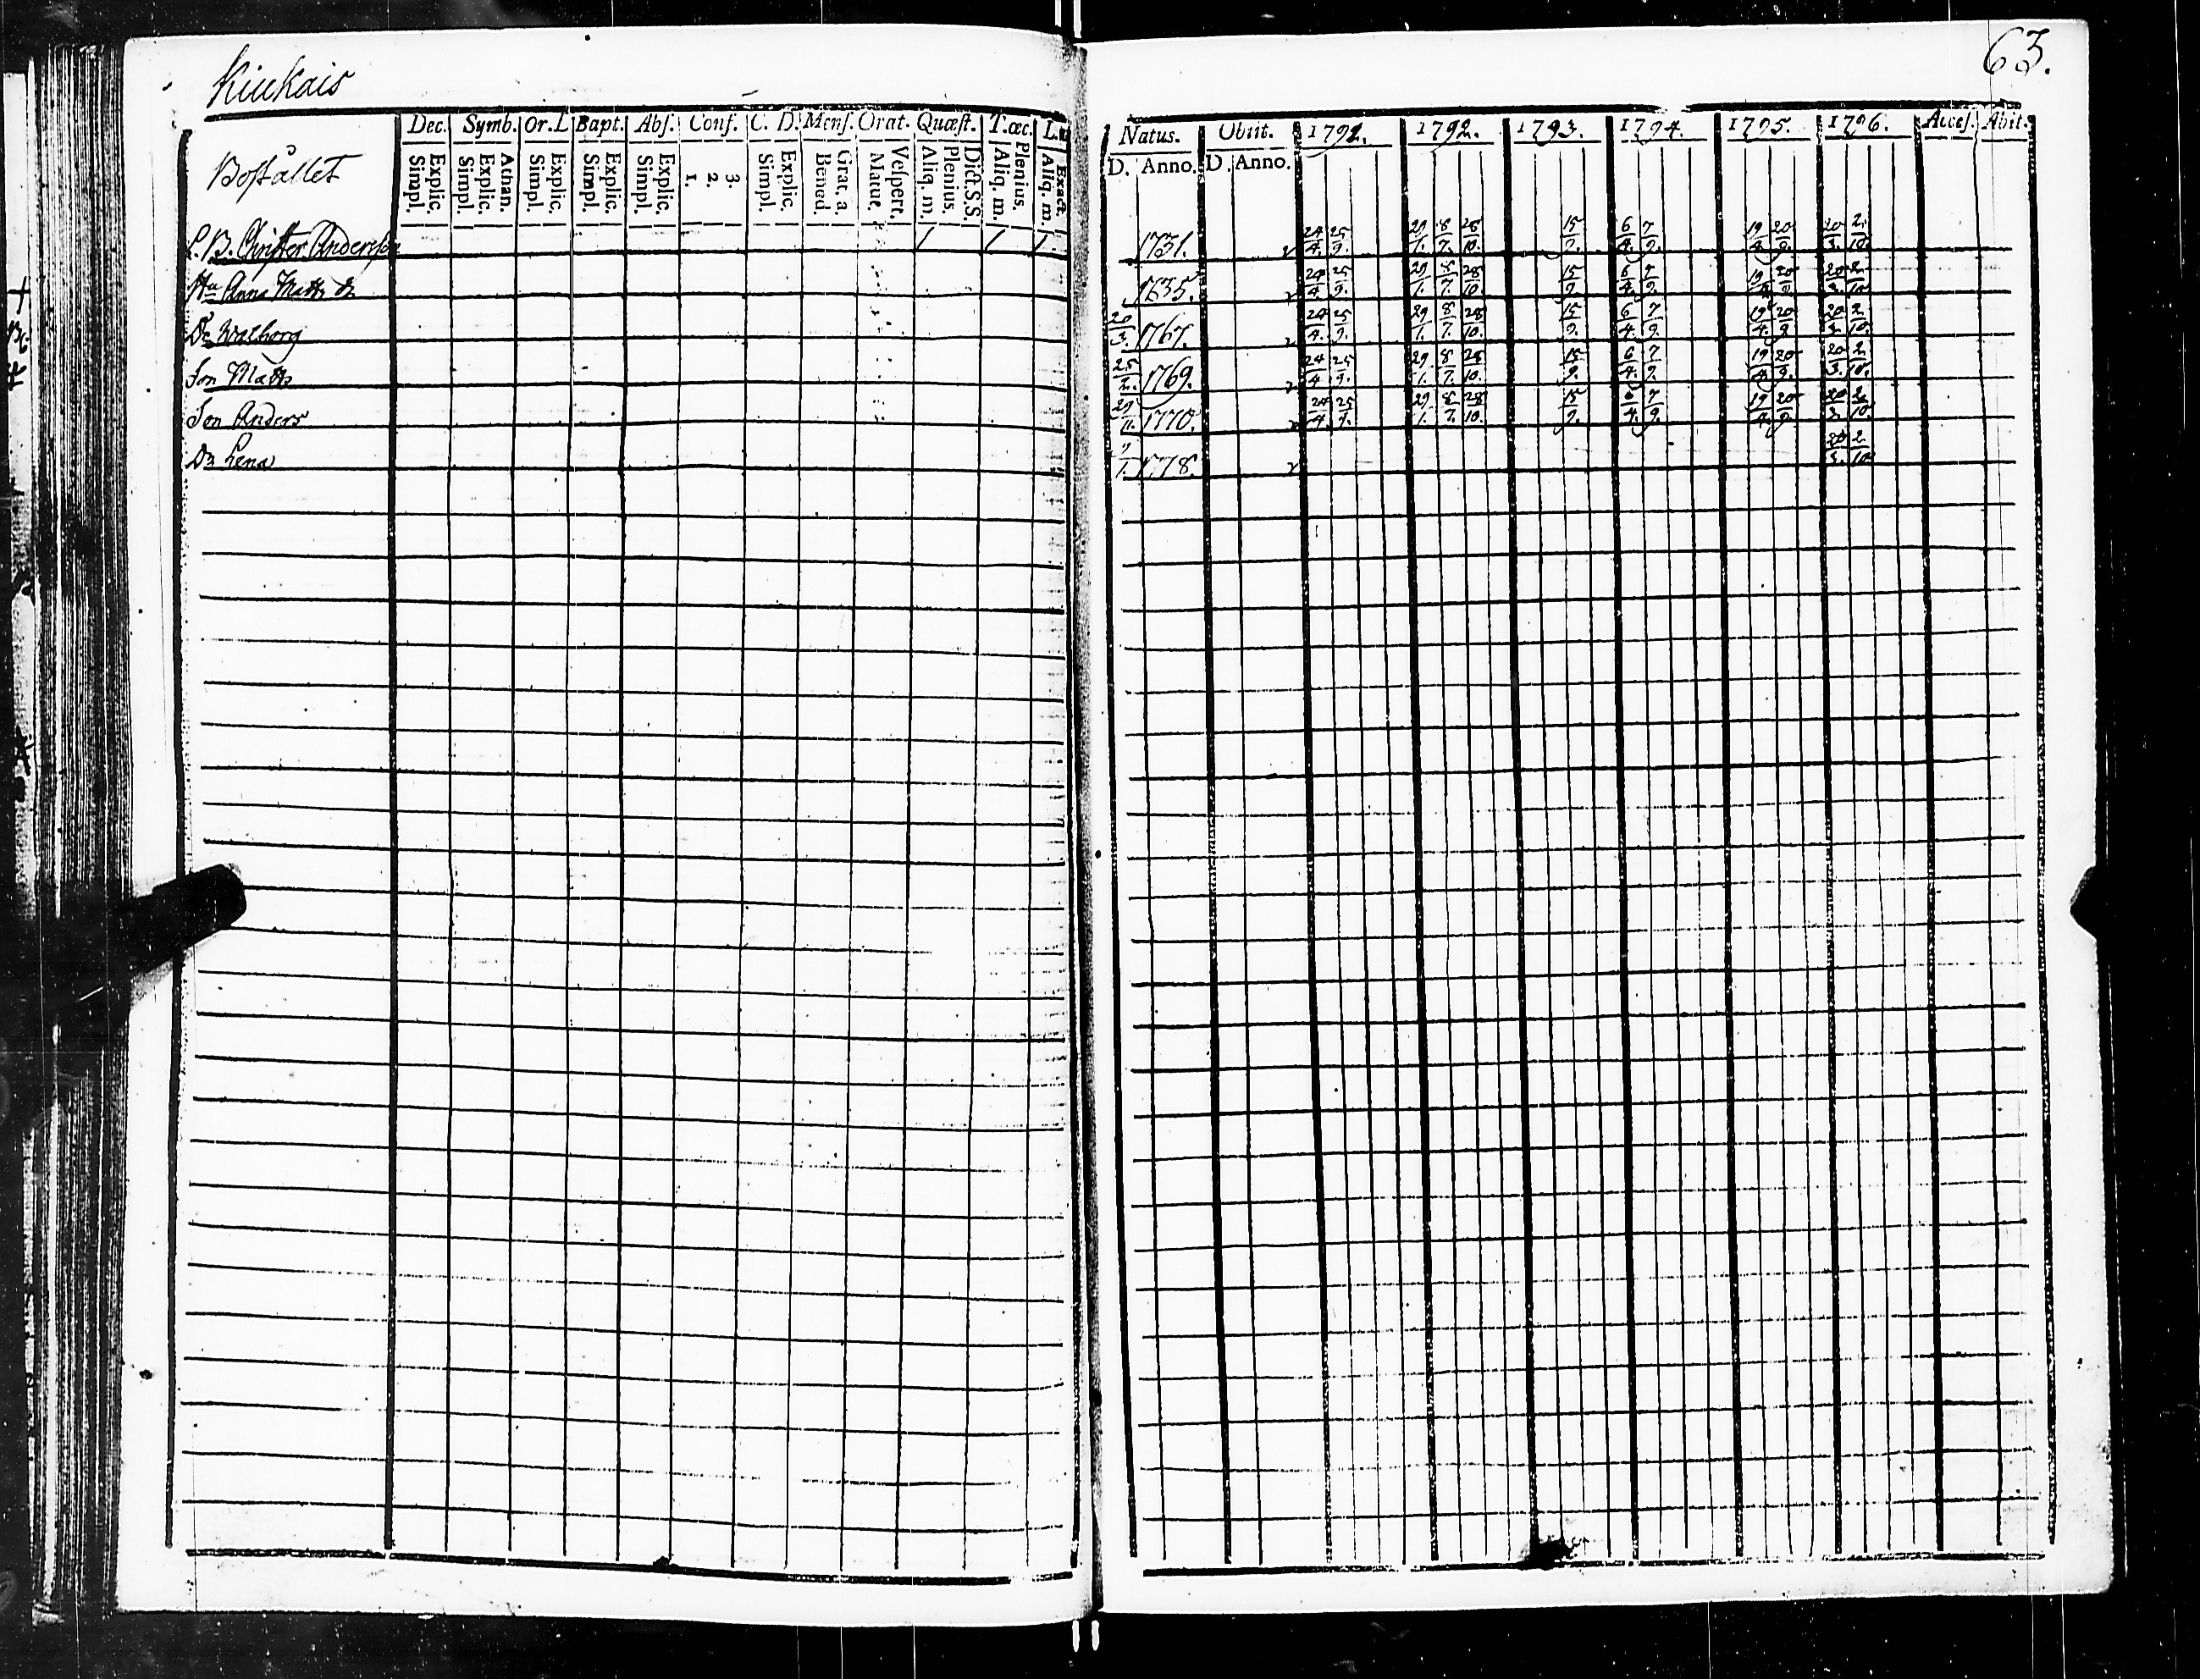 Kiukais
63.
Dec. Symb. Or. L Bapt. Abs. Conf. C. D. Mens. Orat. Quæst. T. œc. L.
Natus. Obiit. 1791. 1792. 1793. 1794. 1795. 1796. Acces. Abit.
Bostället
Simpl. Explic. Simpl. Explic. Athan. Simpl. Explic. Simpl. Explic. Simpl. Explic. 1. 2. 3. Simpl. Explic. Bened. Grat. a. Matut. Vespert. Aliq. m. Plenius. Dict. S.S. Aliq. m. Plenius. Aliq. m. Exact.
D. Anno. D. Anno.
L. B. Christer Andersson 1731. 24/4. 25/9. 29/1. 8/7. 28/10. 15/9. 6/4. 7/9. 19/4. 20/9. 20/3. 2/10.
Hu Anna Matts dr 1735. 24/4. 25/9. 29/1. 8/7. 28/10. 15/9. 6/4. 7/9. 19/4. 20/9. 20/3. 2/10.
Dr Walborg 26/3. 1767. 24/4. 25/9. 29/1. 8/7. 28/10. 15/9. 6/4. 7/9. 19/4. 20/9. 20/3. 2/10.
Son Matts 25/2. 1769. 24/4. 25/9. 29/1. 8/7. 28/10. 15/9. 6/4. 7/9. 19/4. 20/9. 20/3. 2/10.
Son Anders 29/11. 1770. 24/4. 25/9. 29/1. 8/7. 28/10. 15/9. 6/4. 7/9. 19/4. 20/9. 20/3. 2/10.
Dr Lena 7/1. 1778. 20/3. 2/10